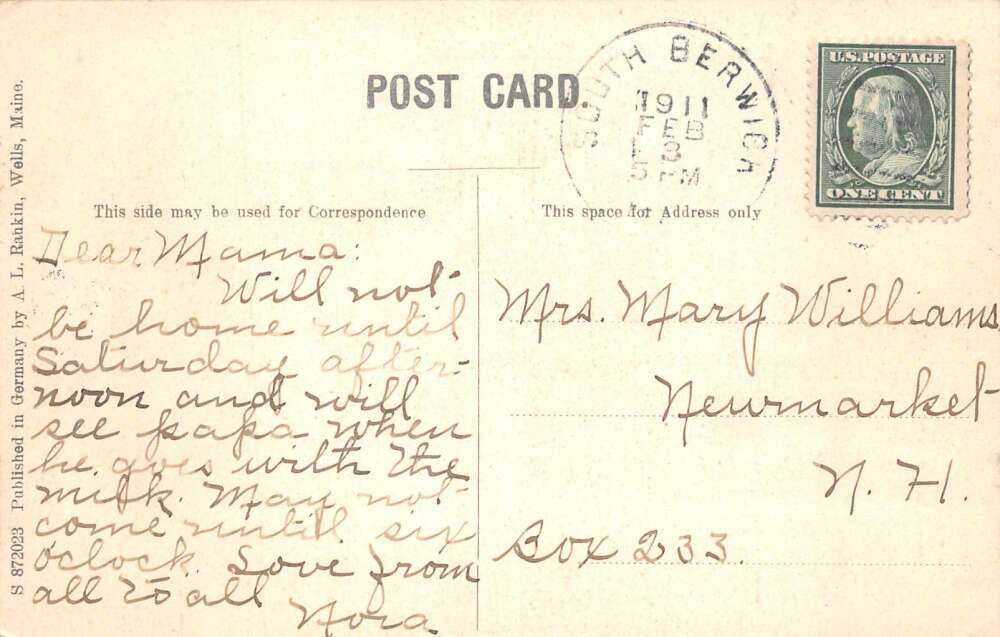 POST CARD.
SOUTH BERWICK
1911
FEB
3
5 PM
U.S. POSTAGE
ONE CENT
This side may be used for Correspondence
This space for Address only
Dear Mama:
Will not
be home until
Saturday after-
noon and will
see papa when
he goes with the
milk. May not
come until six
oclock. Love from
all to all
Nora
Mrs. Mary Williams
Newmarket
N. H.
Box 233.
S 872023 Published in Germany by A. L. Rankin, Wells, Maine.